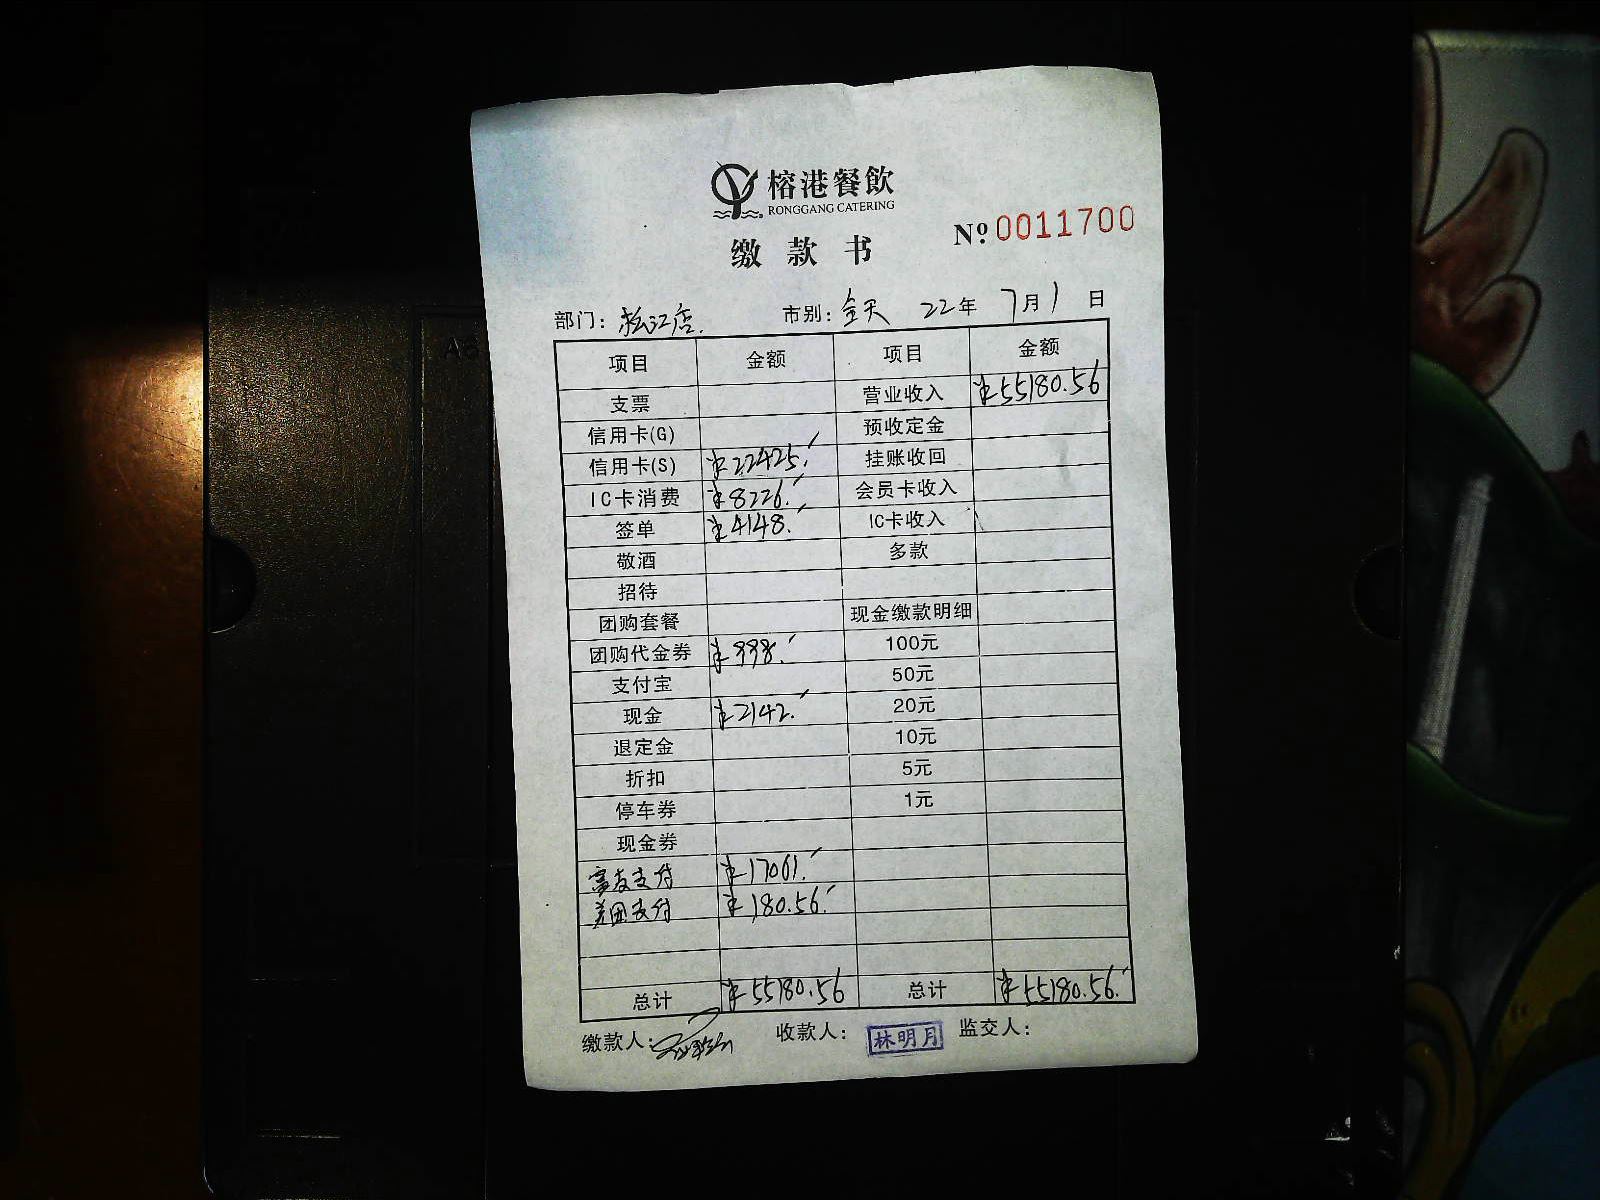 榕港餐飲
RONGGANG CATERING
缴款书 Nº 0011700
部门: 松江店. 市别: 全天 22年 7月1日
项目 金额 项目 金额
支票 营业收入 ¥55180.56
信用卡(G) 预收定金
信用卡(S) ¥22425. 挂账收回
IC卡消费 ¥8226. 会员卡收入
签单 ¥4148. IC卡收入
敬酒 多款
招待
团购套餐 现金缴款明细
团购代金券 ¥998. 100元
支付宝 50元
现金 ¥2142. 20元
退定金 10元
折扣 5元
停车券 1元
现金券
富友支付 ¥17061.
美团支付 ¥180.56.
总计 ¥55180.56 总计 ¥55180.56.
缴款人: 收款人: 林明月 监交人: